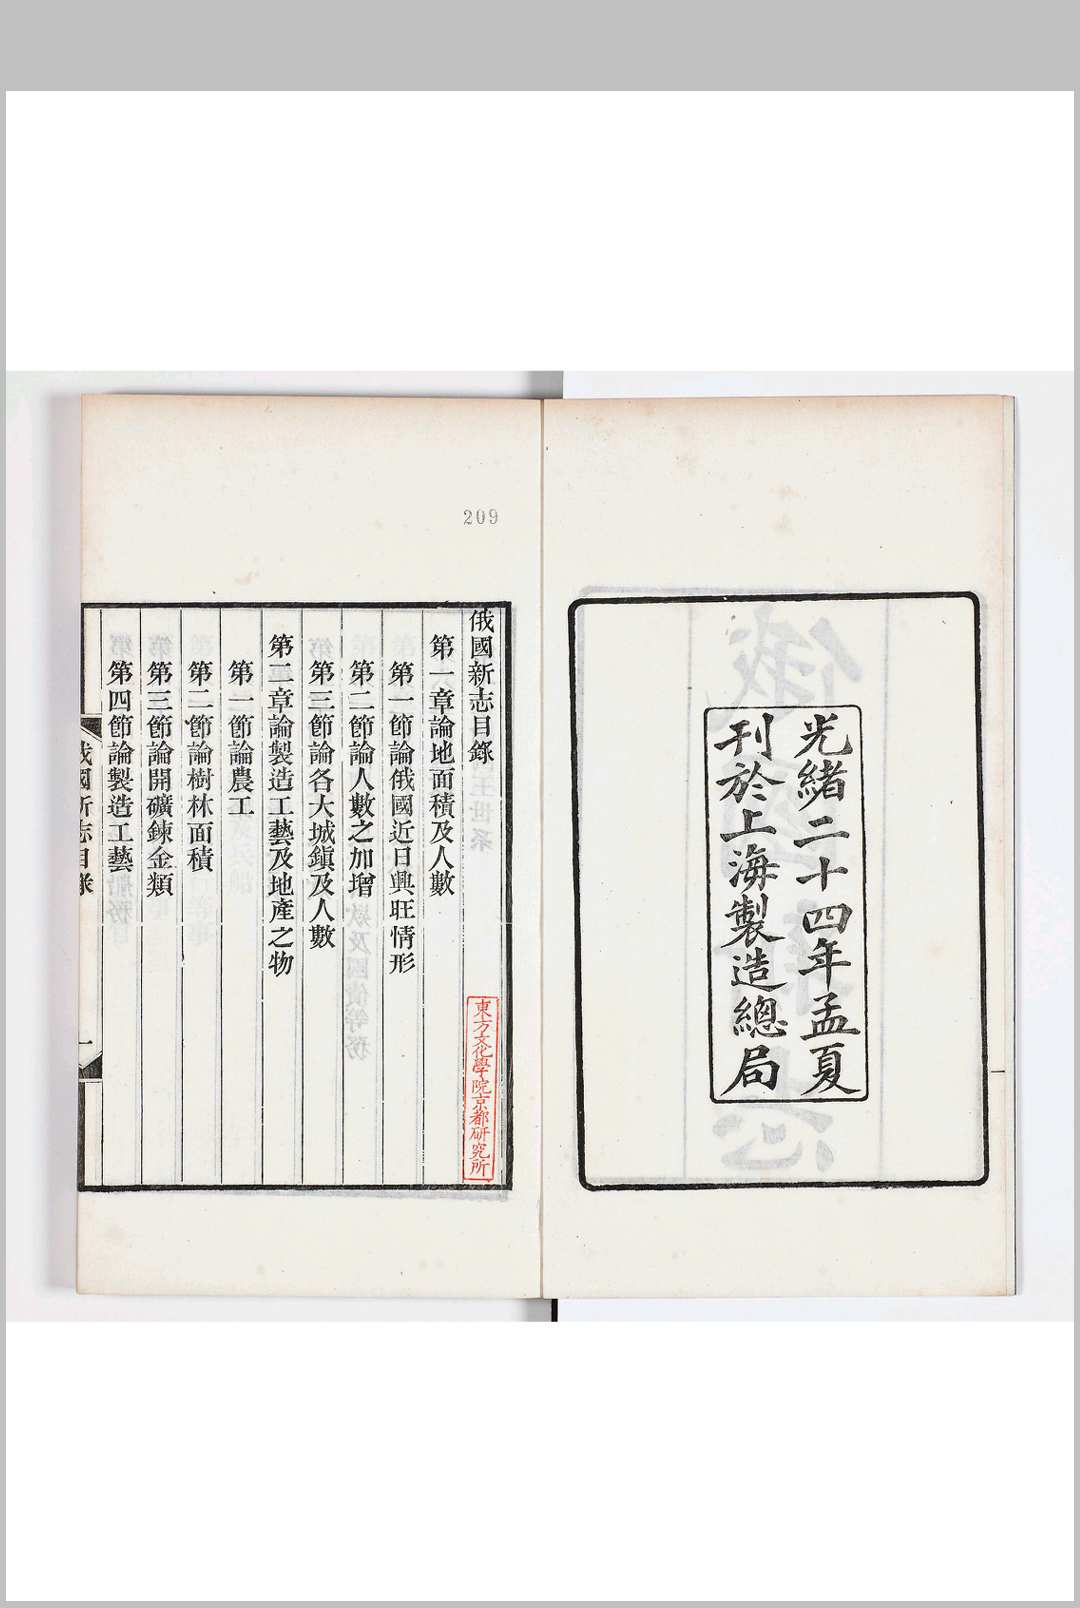 光緒二十四年孟夏
刊於上海製造總局
209
俄國新志目錄
第一章論地面積及人數
第一節論俄國近日興旺情形
第二節論人數之加增
第三節論各大城鎮及人數
第二章論製造工藝及地產之物
第一節論農工
第二節論樹林面積
第三節論開礦鍊金類
第四節論製造工藝
俄國新志目錄
一
東方文化學院京都研究所